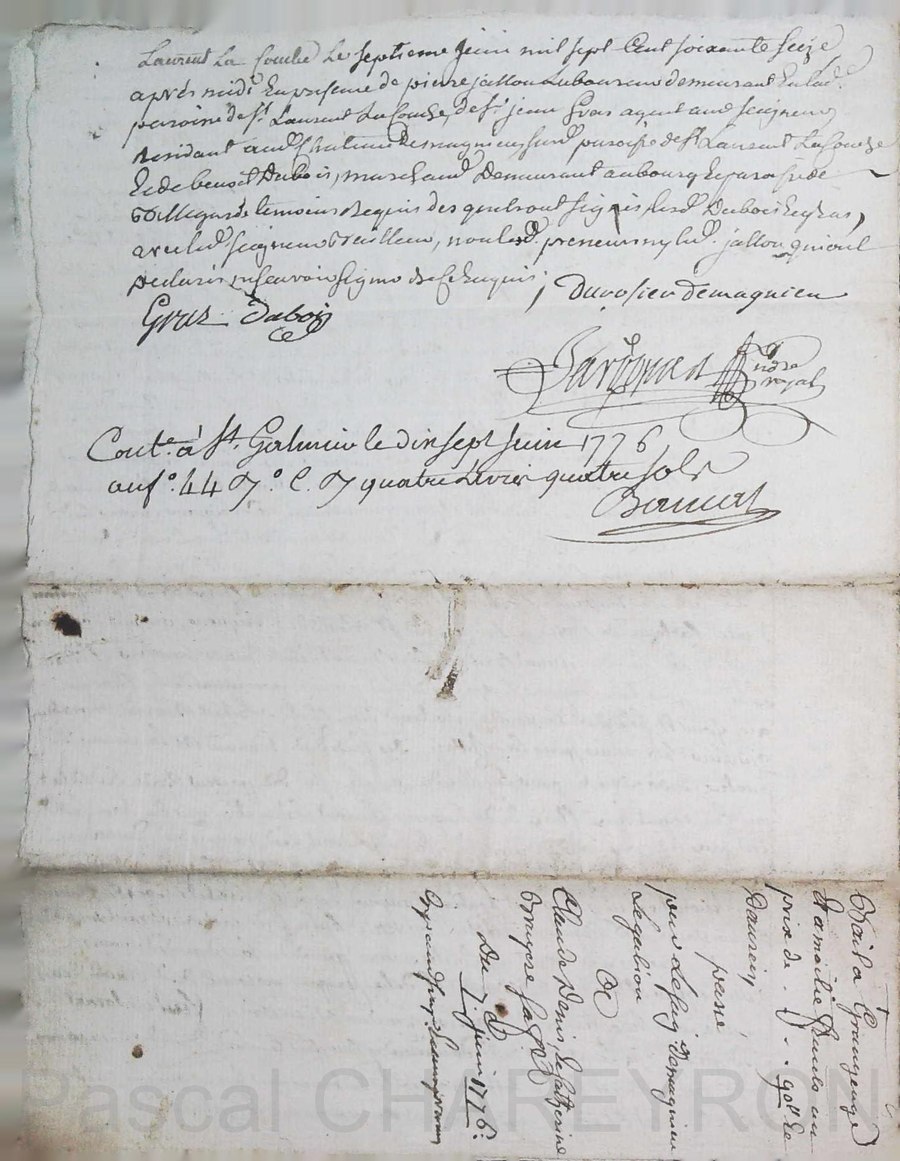 Laurent La Conche Le septieme Juin mil sept Cent soixante seize
après midi En presence de pierre jallon Laboureur demeurant En lad.
paroisse de st. Laurent La Conche, de sr. jean Gras agent aud. seigneur
Residant aud. Chateau de magnieu surd. paroisse de st. Laurent La Conche
Et de benoit Dubois, marchand Demeurant au bourg Et paroisse de
temoins Requis des quels ont signés lesd. Dubois Et gras,
avec led. seigneur Bailleur, non lesd. preneurs ny led. jallon qui ont
declaré ne scavoir signer de ce Enquis ; Durosier de magnieu
Gras Dubois
royal
Cont.e à St. Galmier le dix sept Juin 1776
au f.o 44 v.o C. 7 quatre Livres quatre sols
Bail a Grangeage
prix de 90ll Le
passé
par Le seig. De magnieu
a
Claude Denis, Et Catherine
Du 7. juin 1776.
Pascal CHAREYRON